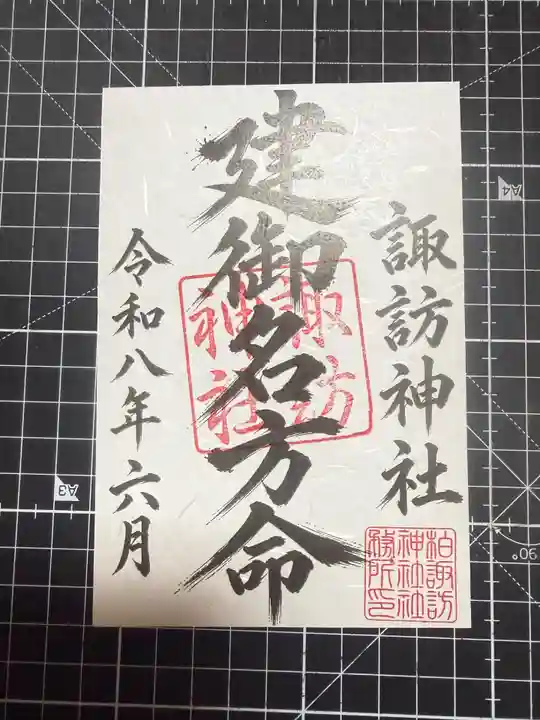 諏訪神社
建御名方命
令和八年六月
諏訪
神社
柏諏訪
神社社
務所印
A4
A3
90°